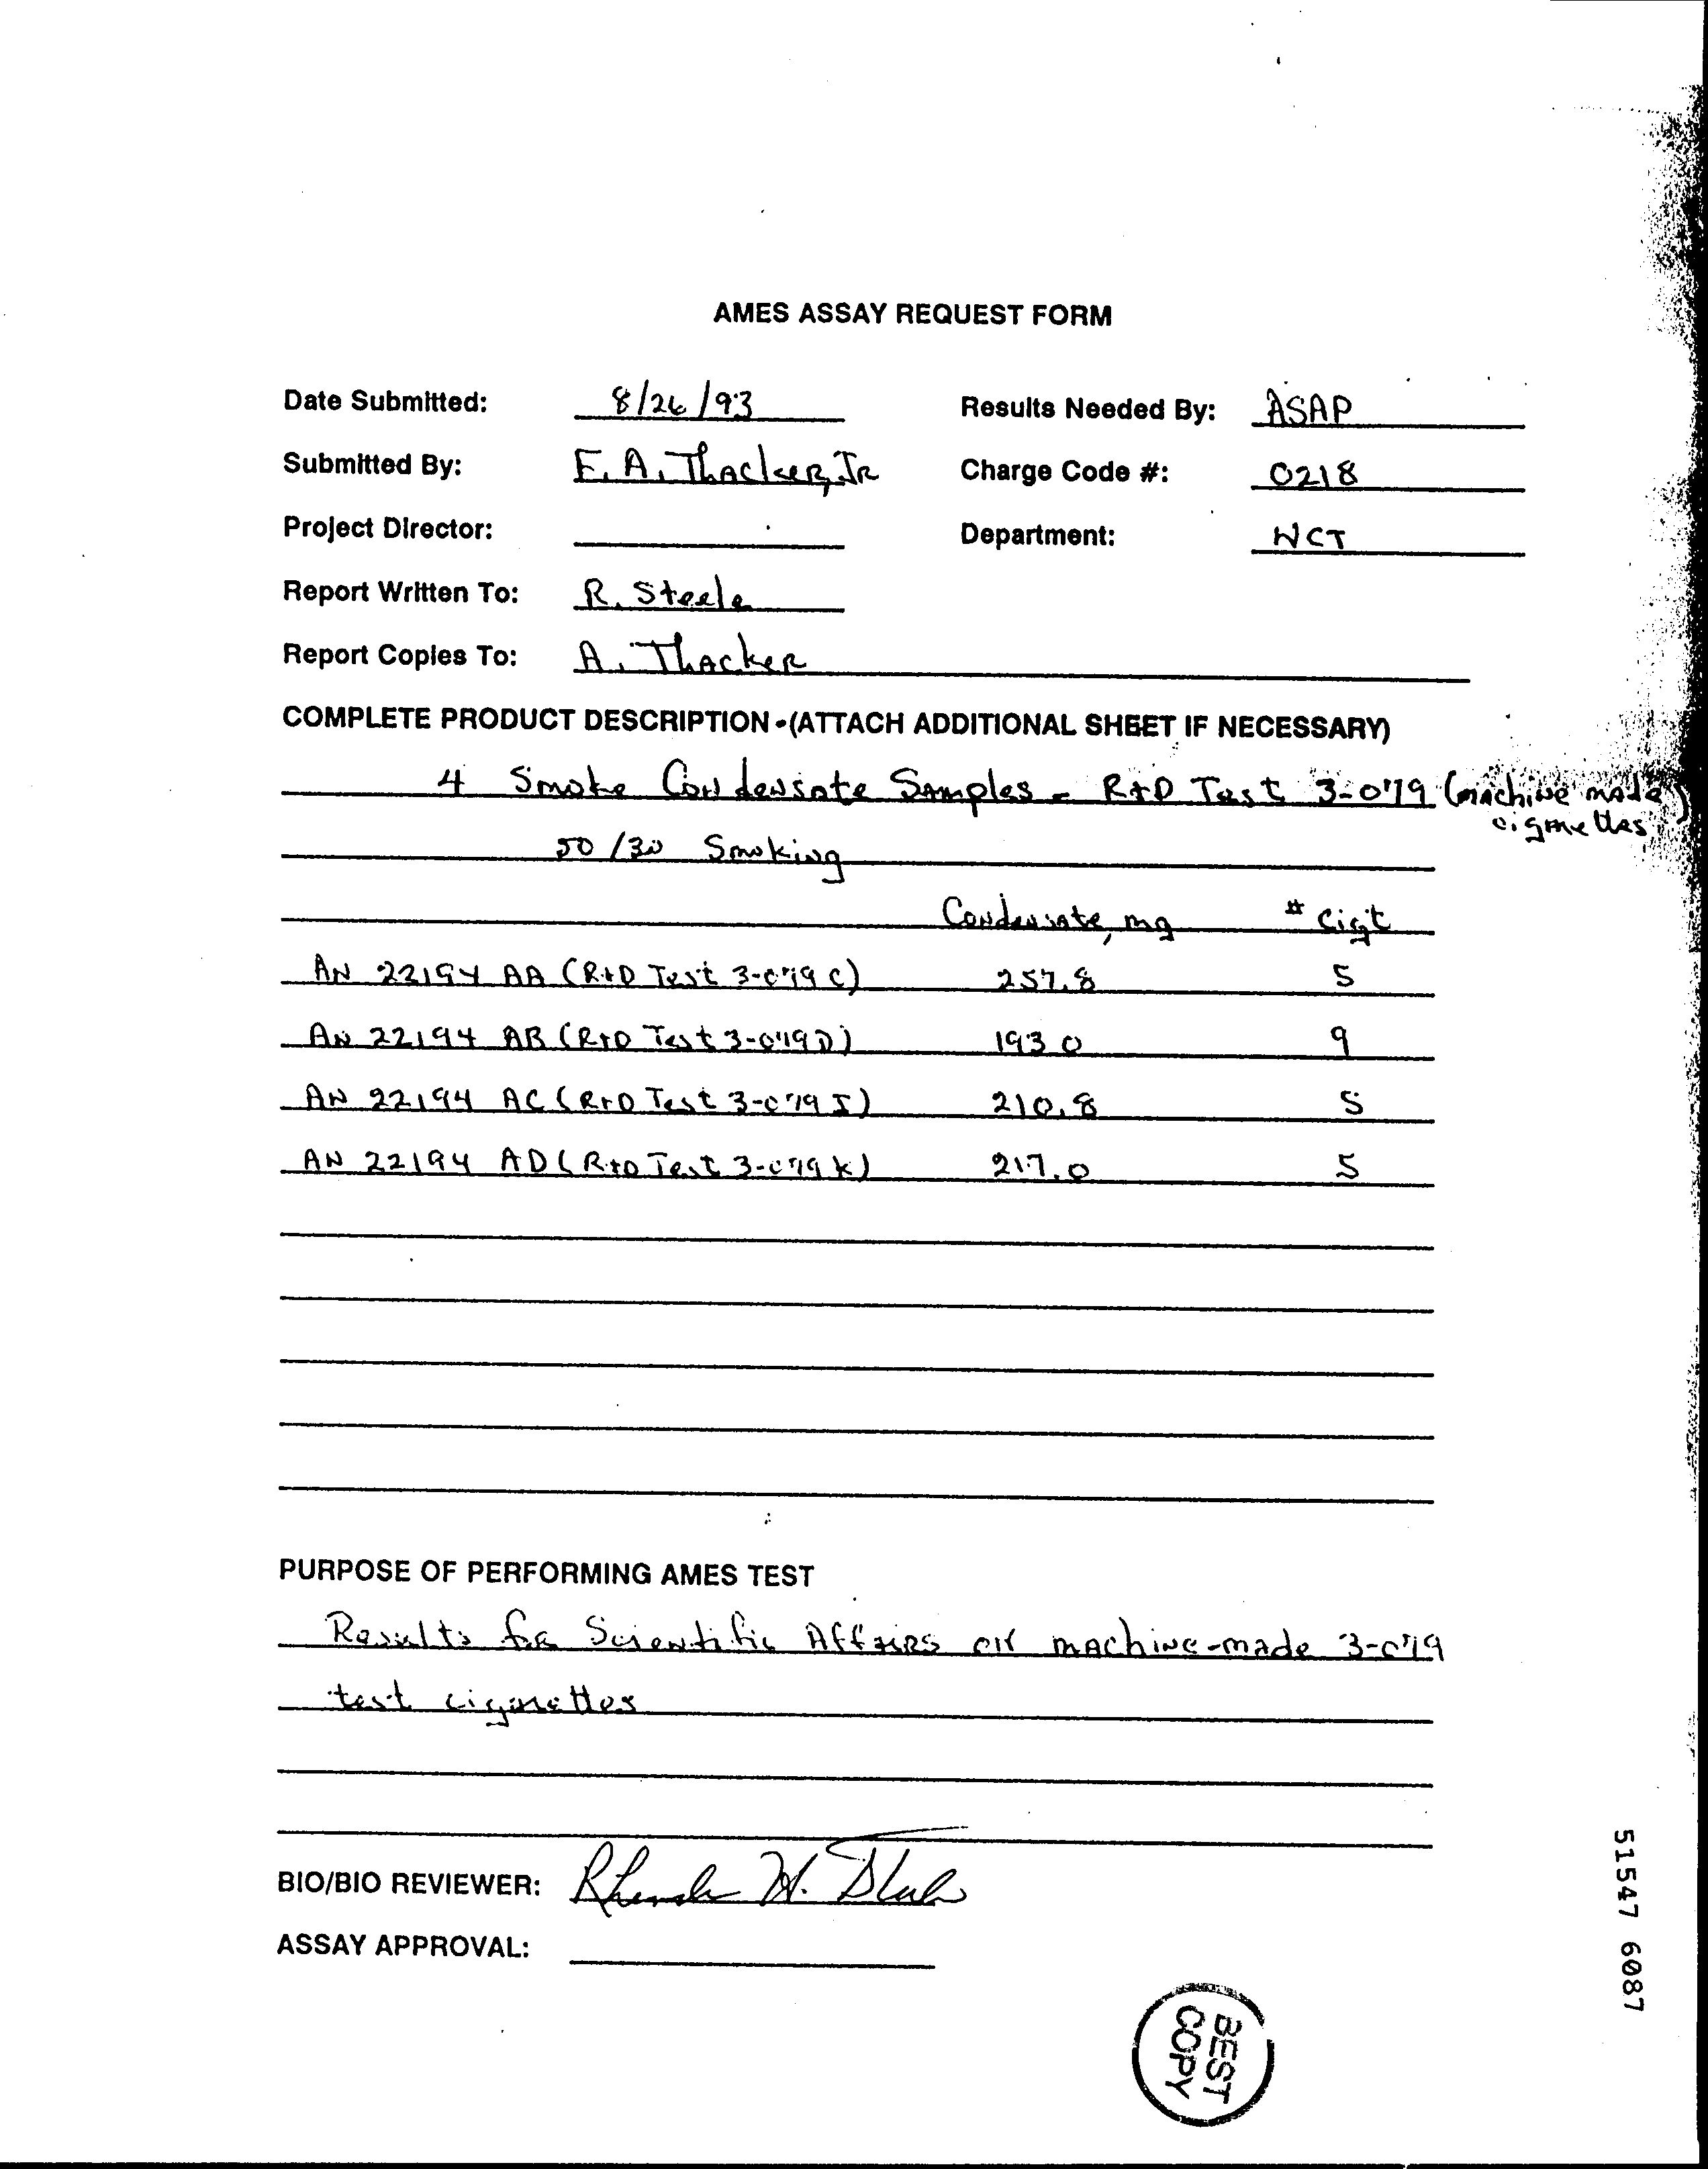 AMES ASSAY REQUEST FORM
Date Submitted: 8/26/93 Results Needed By: ASAP
Submitted By: E. A. Thacker, Jr Charge Code #: 0218
Project Director: Department: NCT
Report Written To: R. Steele
Report Copies To: A. Thacker
COMPLETE PRODUCT DESCRIPTION - (ATTACH ADDITIONAL SHEET IF NECESSARY)
4 Smoke Condensate Samples - R+D Test 3-079 (machine made
cigarettes)
50/30 Smoking
Condensate, mg # Cigt
AN 22194 AA (R+D Test 3-079 C) 257.8 5
AN 22194 AB (R+D Test 3-079D) 193.0 9
AN 22194 AC (R+D Test 3-079 I) 210.8 5
AN 22194 AD (R+D Test 3-079 K) 217.0 5
PURPOSE OF PERFORMING AMES TEST
Results for Scientific Affairs on machine-made 3-079
test cigarettes
BIO/BIO REVIEWER: W.
ASSAY APPROVAL:
51547 6087
BEST
COPY